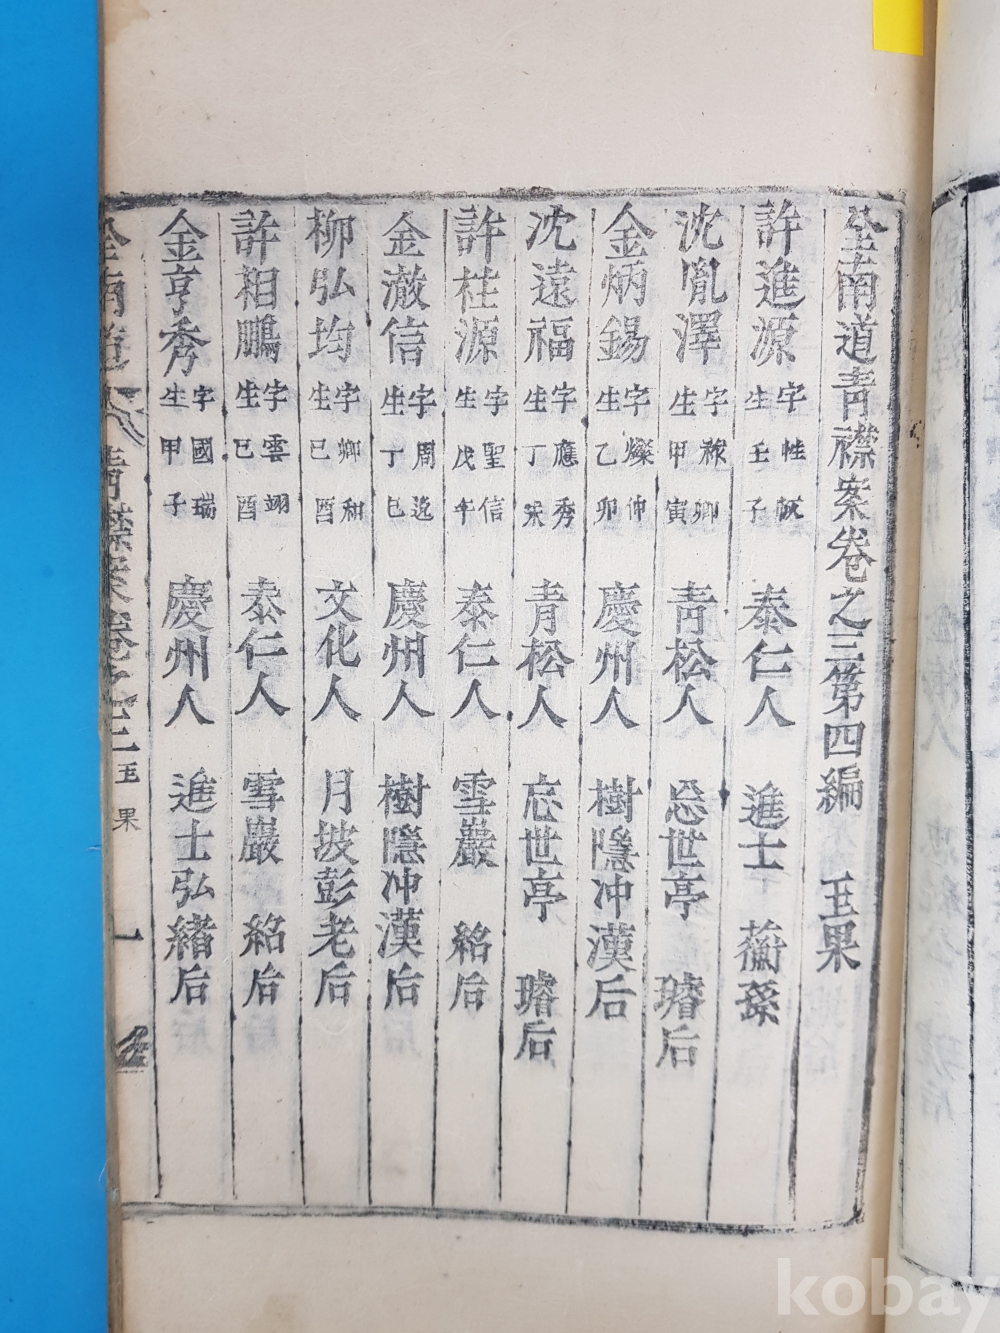 全南道靑襟案卷之三第四編 玉果
許進源 字性 生壬子 泰仁人 進士 蘅孫
沈胤澤 字稼卿 生甲寅 靑松人 忘世亭 璿后
金炳錫 字燦仲 生乙卯 慶州人 樹隱冲漢后
沈遠福 字應秀 生丁未 青松人 忘世亭 璿后
許柱源 字聖信 生戊午 泰仁人 雪巖 紹后
金澈信 字周逸 生丁巳 慶州人 樹隱冲漢后
柳弘均 字卿和 生己酉 文化人 月坡彭老后
許相鵬 字雲翊 生己酉 泰仁人 雪巖 紹后
金亨秀 字國瑞 生甲子 慶州人 進士弘緖后
全南道靑襟案卷之三 玉果 一
kobay